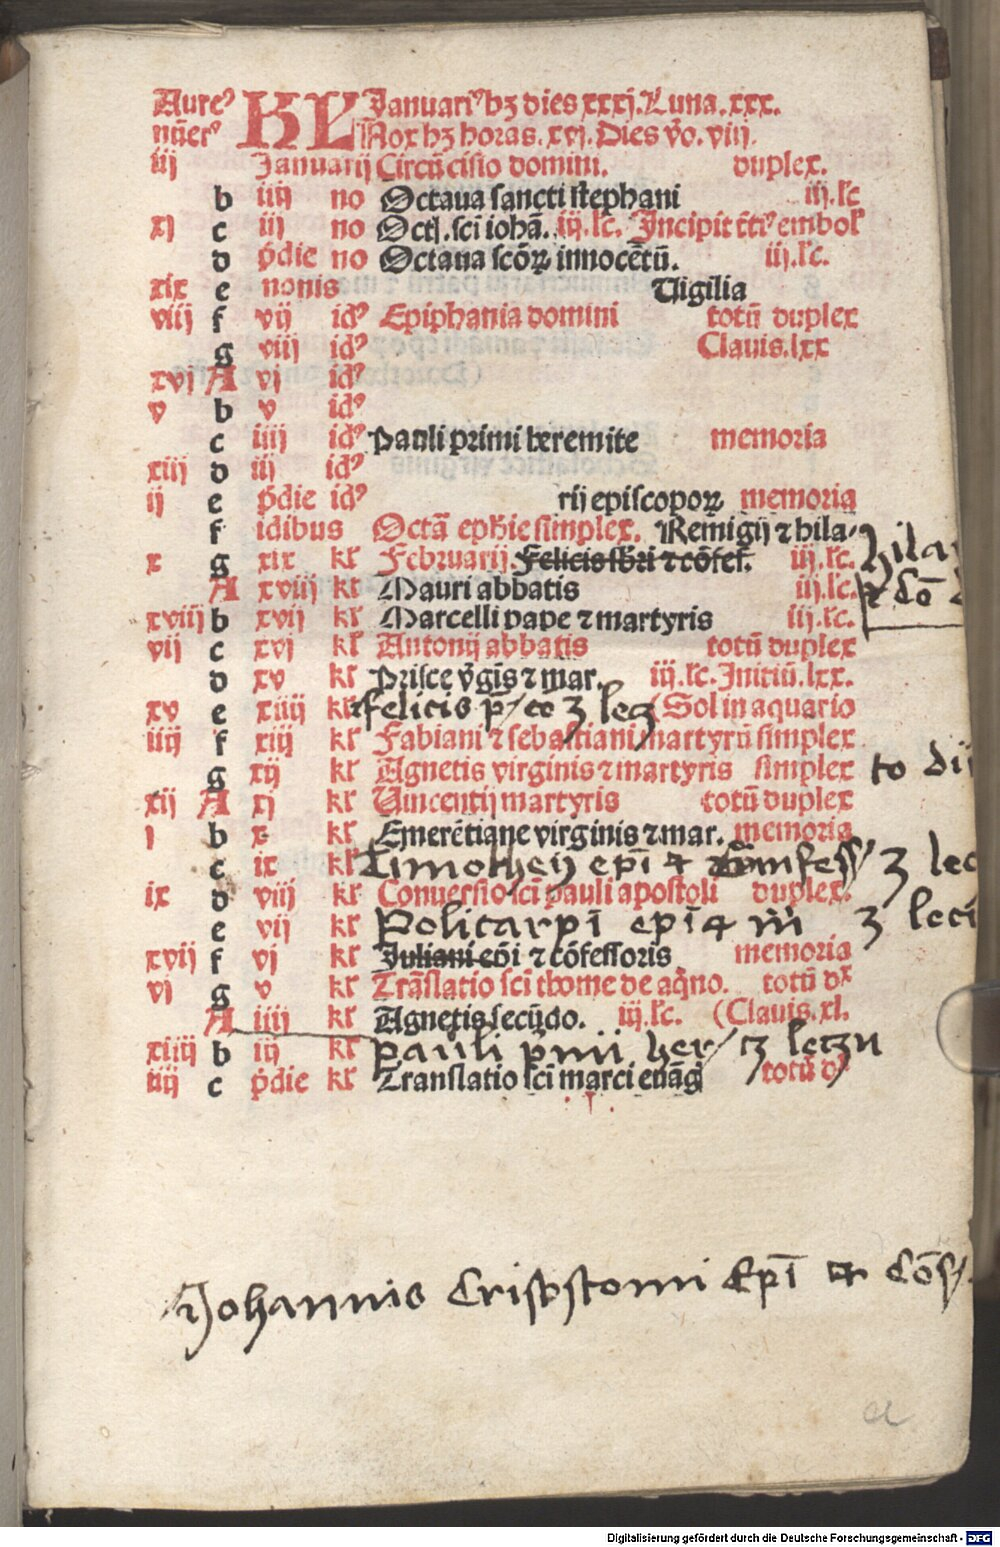 Aureꝰ KL Januariꝰ hꝫ dies xxxj. Luna. xxx.
nūerꝰ Nox hꝫ horas. xvj. Dies v̄o. viij.
iij Januarij Circūcisio domini. duplex.
b iiij no Octaua sancti stephani iij. lc̄
xj c iij no Octā. sci iohā. iij. lc̄. Incipit t̄tꝰ embol
d p̄die no Octaua scōꝝ innocētū. iij. lc̄.
xix e nonis Uigilia
viij f vij idꝰ Epiphania domini totū duplex
g viij idꝰ Clauis. lxx
xvj A vj idꝰ
v b v idꝰ
c iiij idꝰ Pauli primi heremite memoria
xiij d iij idꝰ
ij e p̄die idꝰ rij episcopoꝝ memoria
f idibus Octā ephie simplex. Remigij ⁊ hila-
x g xix kl Februarij. Felicis ⁊ cōfes. iij. lc̄. hila
A xviij kl Mauri abbatis iij. lc̄. ⁊ Cō
xviij b xvij kl Marcelli pape ⁊ martyris iij. lc̄.
vij c xvj kl Antonij abbatis totū duplex
d xv kl Prisce v̄gīs ⁊ mar. iij. lc̄. Initiū. lxx.
xv e xiiij kl felicis p̄ / co 3 lec (Sol in aquario
iiij f xiij kl Fabiani ⁊ sebastiani martyrū simplex
g xij kl Agnetis virginis ⁊ martyris simplex to
xij A xj kl Uincentij martyris totū duplex
j b x kl Emerētiane virginis ⁊ mar. memoria
c ix kl Timothey epī ⁊ Confess 3 lec
ix d viij kl Conuersio sci pauli apostoli duplex.
e vij kl Policarpi epī ⁊ m̄ 3 leci
xvij f vj kl Juliani epi ⁊ cōfessoris memoria
vj g v kl Trāslatio sci thome de aq̄no. totū dx
A iiij kl Agnetis secūdo. iij. lc̄. (Clauis. xl.
xiiij b iij kl pauli p̄mi her / 3
iij c p̄die kl Translatio sci marci euāg totū dx
Johannis Crisostomi Epī ⁊ Cōs/
a
Digitalisierung gefördert durch die Deutsche Forschungsgemeinschaft - DFG